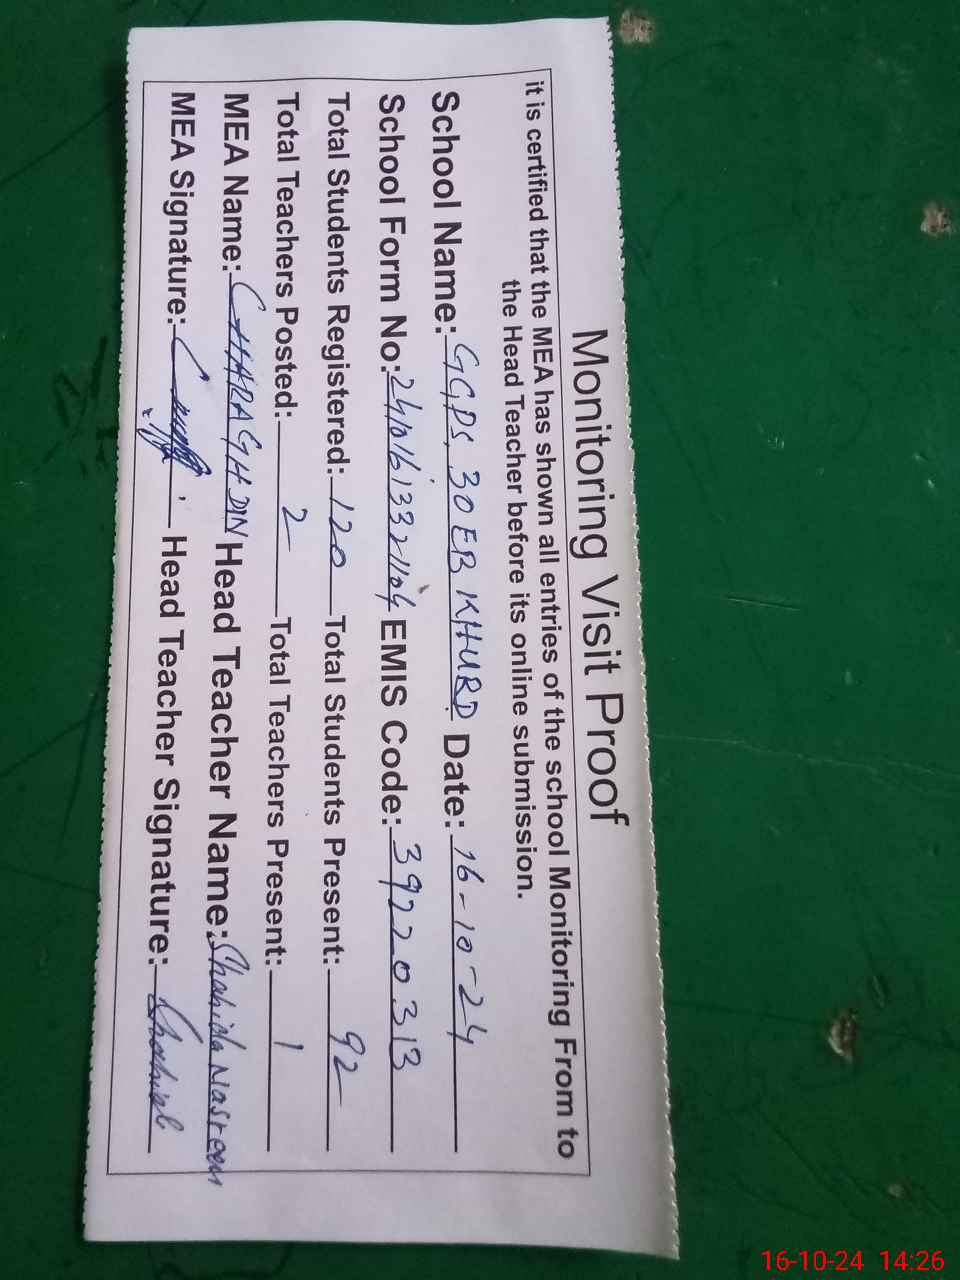 Monitoring Visit Proof
it is certified that the MEA has shown all entries of the school Monitoring From to
the Head Teacher before its online submission.
School Name: GGPS, 30 EB KHURD Date: 16-10-24
School Form No: EMIS Code: 39220313
Total Students Registered: 120 Total Students Present: 92
Total Teachers Posted: 2 Total Teachers Present: 1
MEA Name: CHARAGH DIN Head Teacher Name: Shahida Nasreen
MEA Signature: Head Teacher Signature:
16-10-24 14:26